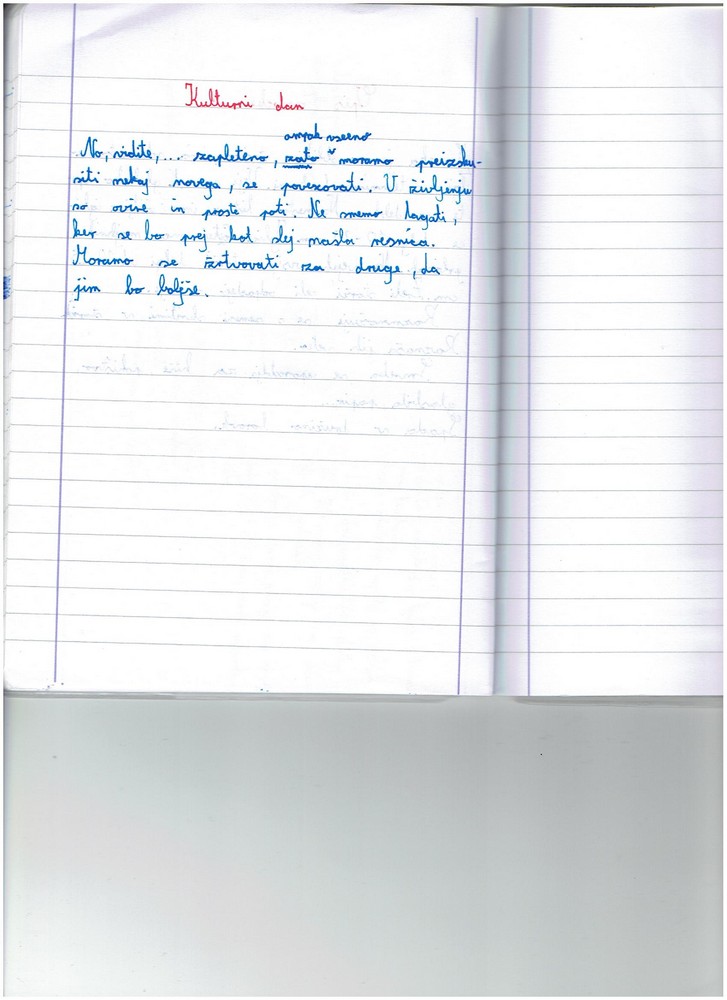 Kulturni dan
ampak vseeno
No, vidite, ... zapleteno, zato moramo preizsku-
siti nekaj novega, se povezovati. V življenju
so ovire in proste poti. Ne smemo lagati,
ker se bo prej kot slej našla resnica.
Moramo se žrtvovati za druge, da
jim bo boljše.